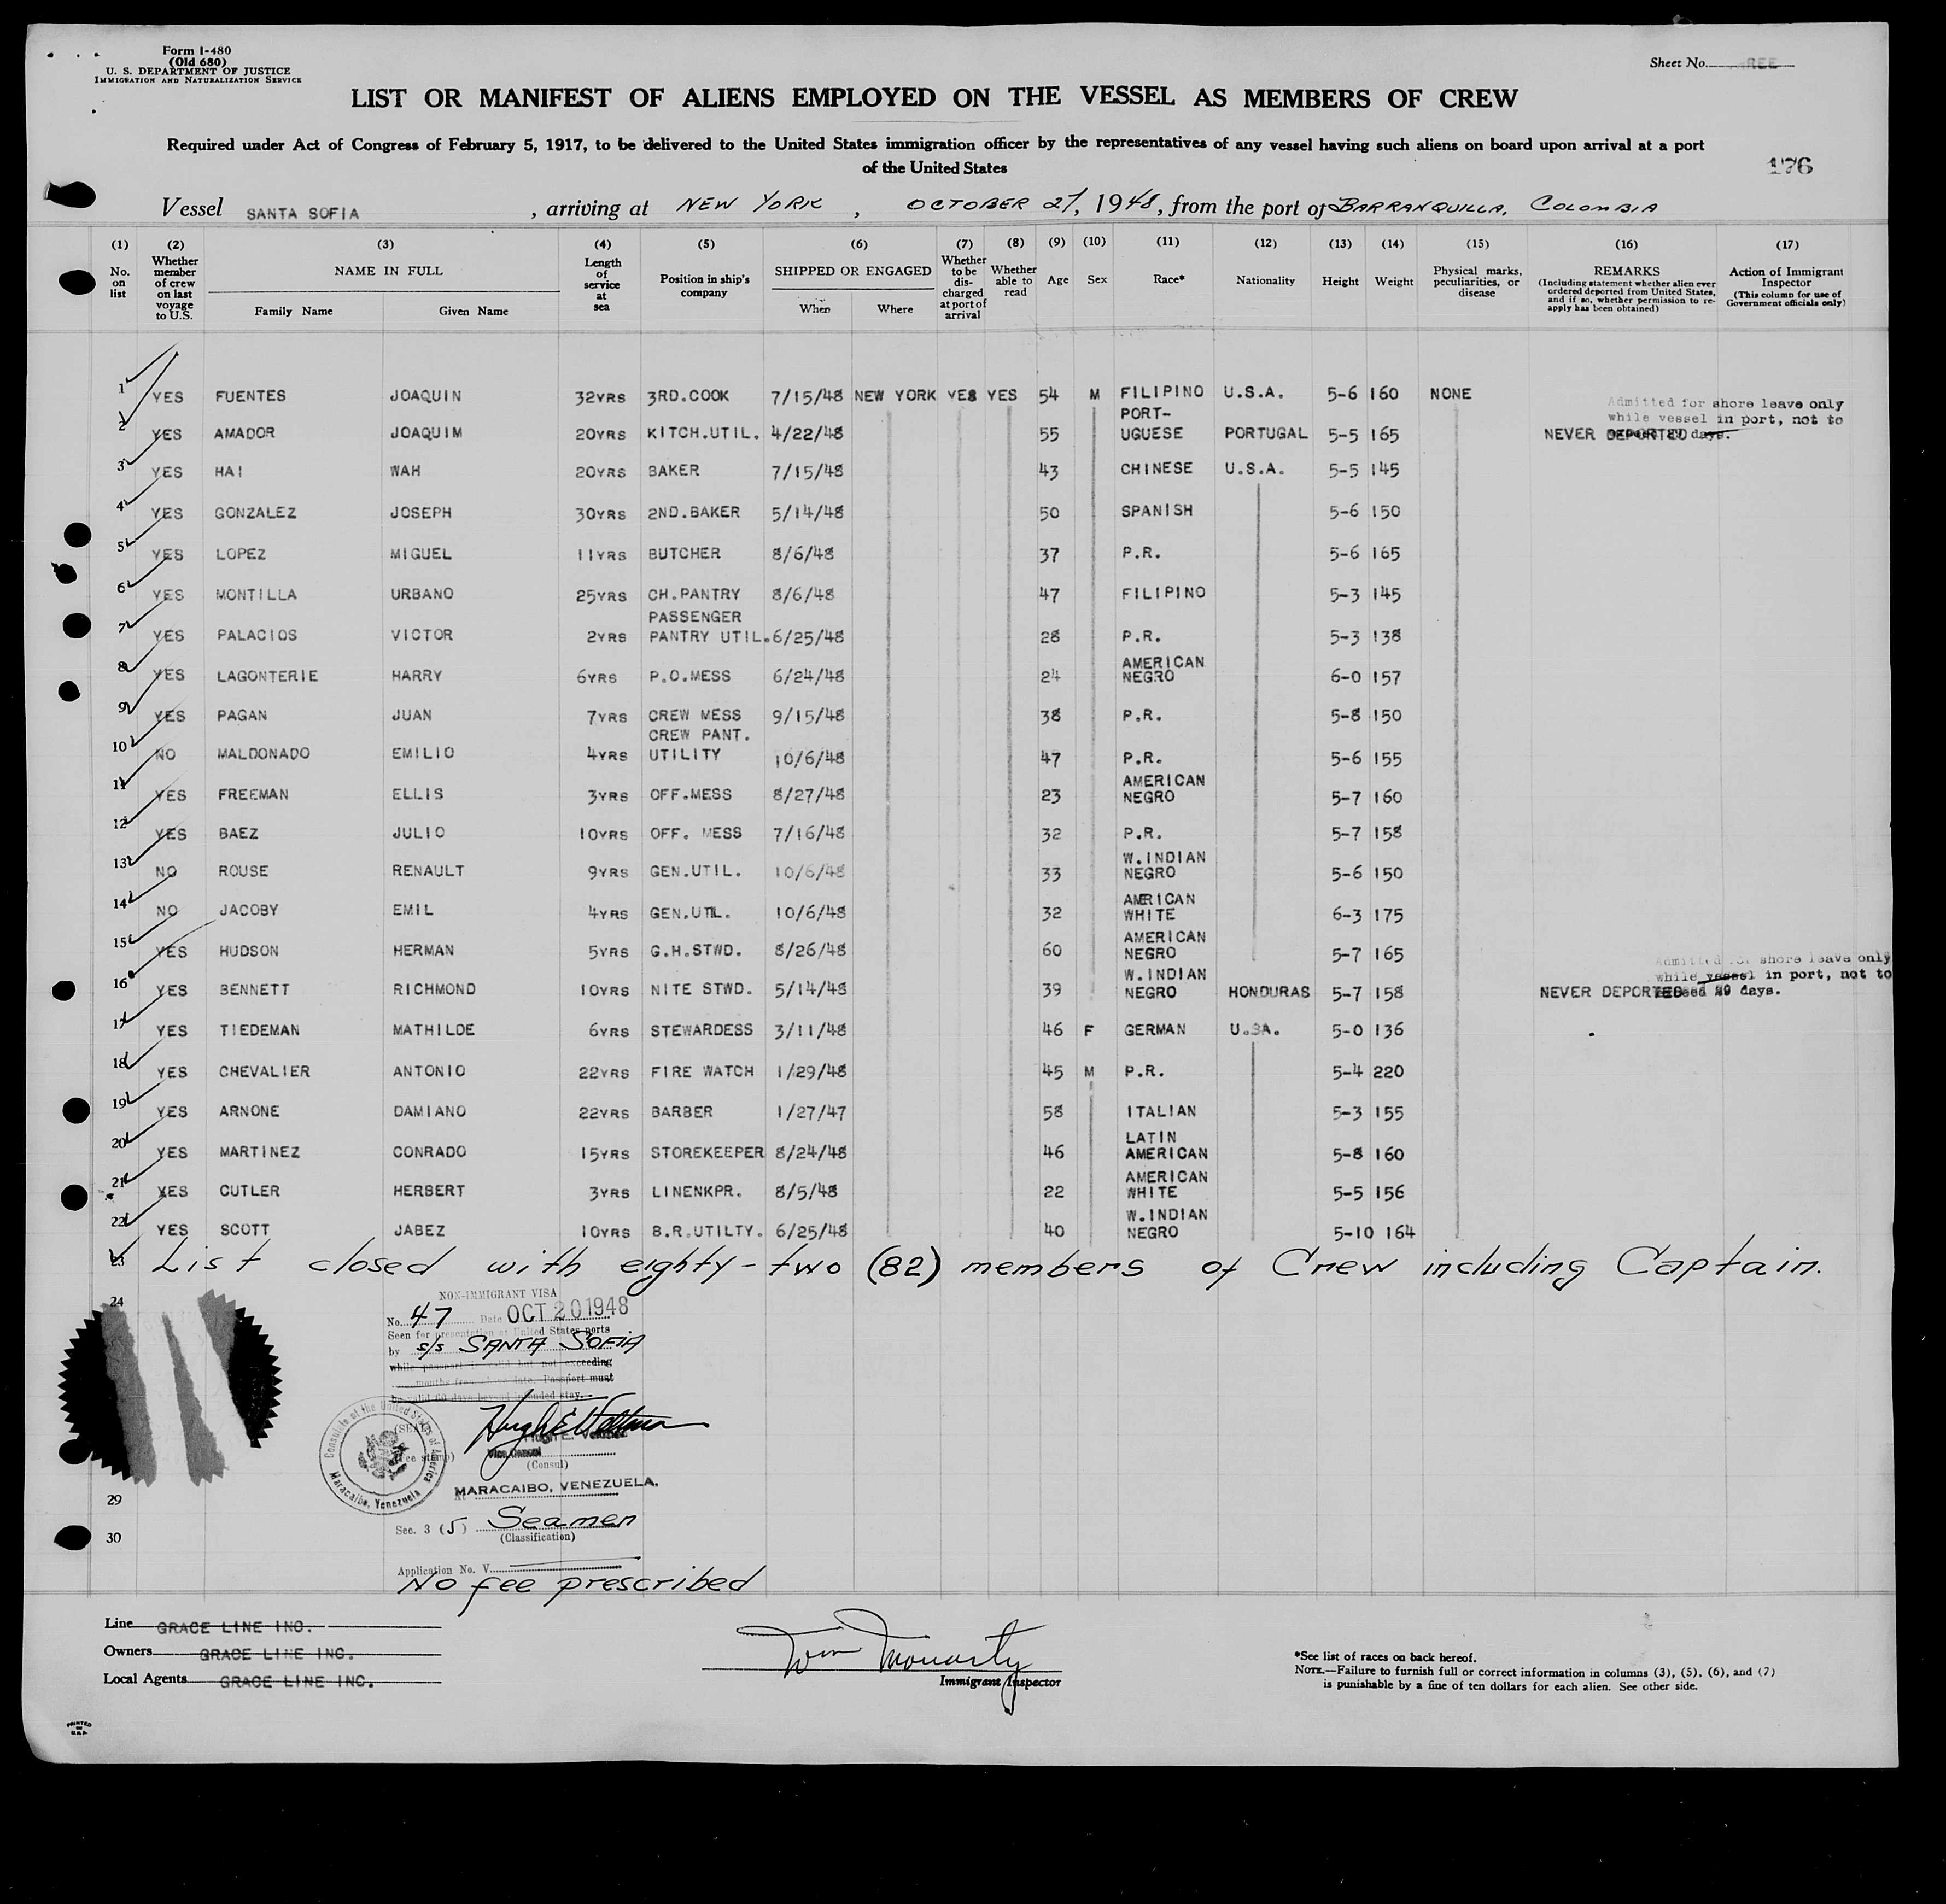 Form I-480
(Old 680)
U. S. DEPARTMENT OF JUSTICE
IMMIGRATION AND NATURALIZATION SERVICE
Sheet No. REE
LIST OR MANIFEST OF ALIENS EMPLOYED ON THE VESSEL AS MEMBERS OF CREW
Required under Act of Congress of February 5, 1917, to be delivered to the United States immigration officer by the representatives of any vessel having such aliens on board upon arrival at a port
of the United States
176
Vessel SANTA SOFIA, arriving at NEW YORK, OCTOBER 27, 1948, from the port of BARRANQUILLA, COLOMBIA
(1) (2) (3) (4) (5) (6) (7) (8) (9) (10) (11) (12) (13) (14) (15) (16) (17)
No. on list
Whether member of crew on last voyage to U.S.
NAME IN FULL
Family Name Given Name
Length of service at sea
Position in ship's company
SHIPPED OR ENGAGED
When Where
Whether to be discharged at port of arrival
Whether able to read
Age Sex Race* Nationality Height Weight
Physical marks, peculiarities, or disease
REMARKS
(Including statement whether alien ever ordered deported from United States, and if so, whether permission to reapply has been obtained)
Action of Immigrant Inspector
(This column for use of Government officials only)
1 YES FUENTES JOAQUIN 32YRS 3RD.COOK 7/15/48 NEW YORK YES YES 54 M FILIPINO U.S.A. 5-6 160 NONE
Admitted for shore leave only
while vessel in port, not to
days.
2 YES AMADOR JOAQUIM 20YRS KITCH.UTIL. 4/22/48 55 PORT-UGUESE PORTUGAL 5-5 165 NEVER DEPORTED
3 YES HAI WAH 20YRS BAKER 7/15/48 43 CHINESE U.S.A. 5-5 145
4 YES GONZALEZ JOSEPH 30YRS 2ND.BAKER 5/14/48 50 SPANISH 5-6 150
5 YES LOPEZ MIGUEL 11YRS BUTCHER 8/6/48 37 P.R. 5-6 165
6 YES MONTILLA URBANO 25YRS CH.PANTRY 8/6/48 47 FILIPINO 5-3 145
7 YES PALACIOS VICTOR 2YRS PASSENGER PANTRY UTIL. 6/25/48 28 P.R. 5-3 138
8 YES LAGONTERIE HARRY 6YRS P.O.MESS 6/24/48 24 AMERICAN NEGRO 6-0 157
9 YES PAGAN JUAN 7YRS CREW MESS 9/15/48 38 P.R. 5-8 150
10 NO MALDONADO EMILIO 4YRS CREW PANT. UTILITY 10/6/48 47 P.R. 5-6 155
11 YES FREEMAN ELLIS 3YRS OFF.MESS 8/27/48 23 AMERICAN NEGRO 5-7 160
12 YES BAEZ JULIO 10YRS OFF. MESS 7/16/48 32 P.R. 5-7 158
13 NO ROUSE RENAULT 9YRS GEN.UTIL. 10/6/48 33 W.INDIAN NEGRO 5-6 150
14 NO JACOBY EMIL 4YRS GEN.UTIL. 10/6/48 32 AMRICAN WHITE 6-3 175
15 YES HUDSON HERMAN 5YRS G.H.STWD. 8/26/48 60 AMERICAN NEGRO 5-7 165
Admitted for shore leave only
while vessel in port, not to
exceed 29 days.
16 YES BENNETT RICHMOND 10YRS NITE STWD. 5/14/48 39 W.INDIAN NEGRO HONDURAS 5-7 158 NEVER DEPORTED
17 YES TIEDEMAN MATHILDE 6YRS STEWARDESS 3/11/48 46 F GERMAN U.SA. 5-0 136
18 YES CHEVALIER ANTONIO 22YRS FIRE WATCH 1/29/48 45 M P.R. 5-4 220
19 YES ARNONE DAMIANO 22YRS BARBER 1/27/47 58 ITALIAN 5-3 155
20 YES MARTINEZ CONRADO 15YRS STOREKEEPER 8/24/48 46 LATIN AMERICAN 5-8 160
21 YES CUTLER HERBERT 3YRS LINENKPR. 8/5/48 22 AMERICAN WHITE 5-5 156
22 YES SCOTT JABEZ 10YRS B.R.UTILTY. 6/25/48 40 W.INDIAN NEGRO 5-10 164
23 List closed with eighty-two (82) members of Crew including Captain.
24
NON-IMMIGRANT VISA
No. 47 Date OCT 20 1948
Seen for presentation at United States ports
by s/s SANTA SOFIA
while passport is valid but not exceeding
months from above date. Passport must
be valid 60 days beyond intended stay.
(SEAL)
(Fee stamp)
Consulate of the United States of America
Maracaibo, Venezuela
Vice Consul
(Consul)
At MARACAIBO, VENEZUELA.
29
Sec. 3 (5) Seamen
(Classification)
30
Application No. V
No fee prescribed
Line GRACE LINE INC.
Owners GRACE LINE INC.
Local Agents GRACE LINE INC.
Wm Moriarty
Immigrant Inspector
*See list of races on back hereof.
NOTE.—Failure to furnish full or correct information in columns (3), (5), (6), and (7)
is punishable by a fine of ten dollars for each alien. See other side.
PRINTED IN U.S.A.